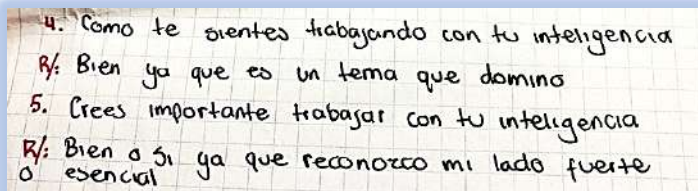 4. Como te sientes trabajando con tu inteligencia
R/: Bien ya que es un tema que domino
5. Crees importante trabajar con tu inteligencia
R/: Bien o si ya que reconozco mi lado fuerte
o esencial